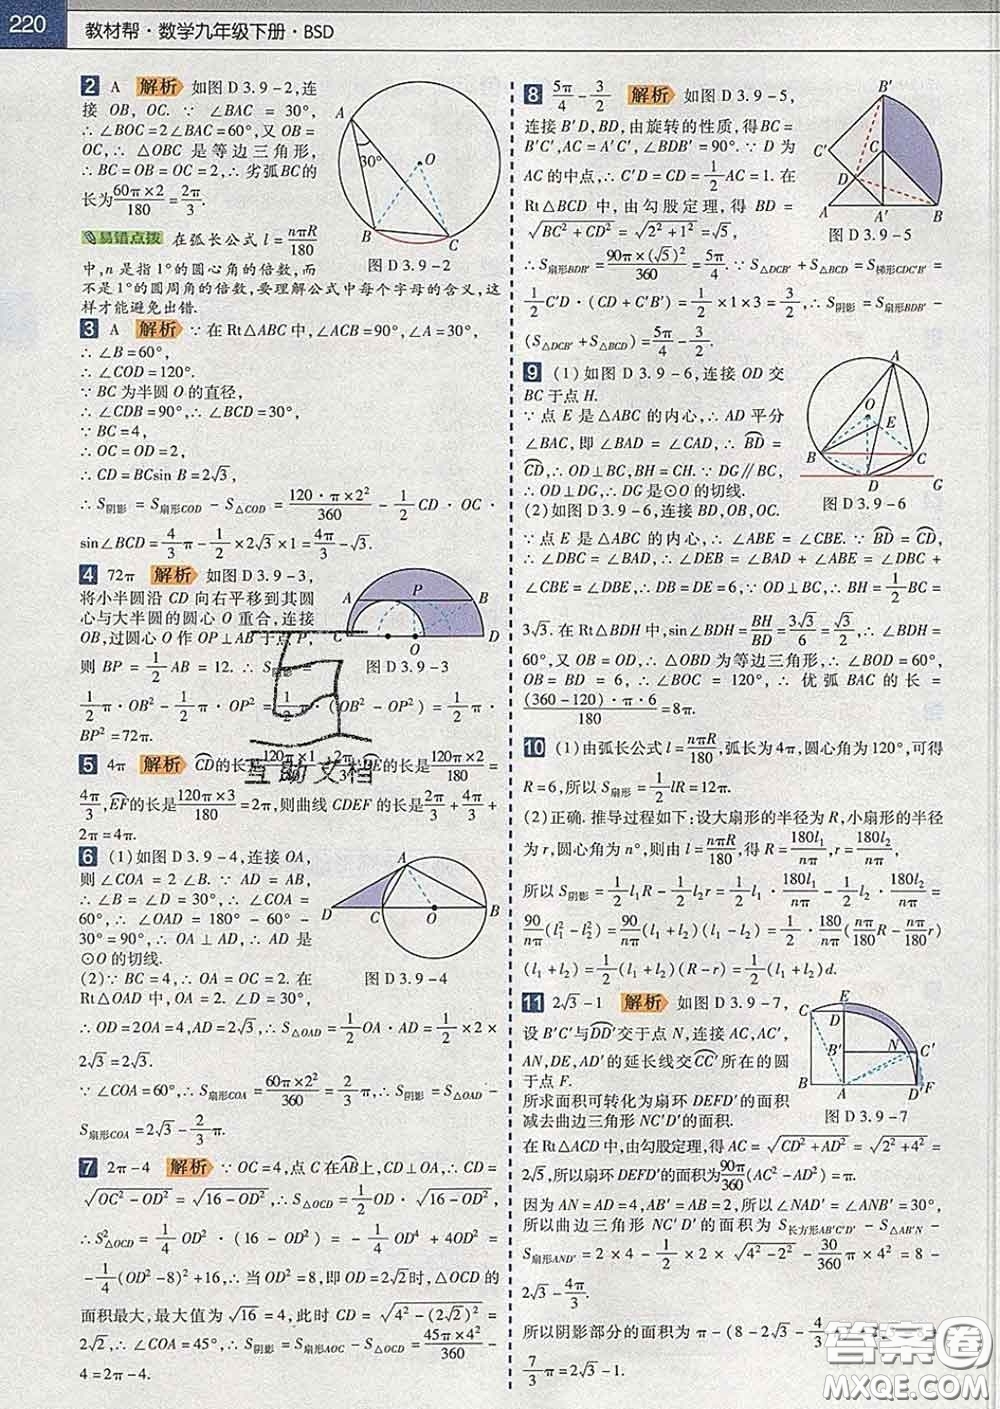 220
教材帮·数学九年级下册·BSD
2 A 解析 如图 D 3.9-2,连
接 OB, OC. ∵ ∠BAC = 30°,
∴ ∠BOC = 2∠BAC = 60°, 又 OB =
OC, ∴ △OBC 是等边三角形,
∴ BC = OB = OC = 2, ∴ 劣弧 BC 的
长为 60π×2/180 = 2π/3.
A
30°
O
B
C
图 D 3.9-2
易错点拨 在弧长公式 l = nπR/180
中, n 是指 1°的圆心角的倍数, 而
不是 1°的圆周角的倍数, 要理解公式中每个字母的含义, 这
样才能避免出错.
3 A 解析 ∵ 在 Rt△ABC 中, ∠ACB = 90°, ∠A = 30°,
∴ ∠B = 60°,
∴ ∠COD = 120°.
∵ BC 为半圆 O 的直径,
∴ ∠CDB = 90°, ∴ ∠BCD = 30°.
∵ BC = 4,
∴ OC = OD = 2,
∴ CD = BCsin B = 2√3,
∴ S阴影 = S扇形COD - S△COD = 120·π×2²/360 - 1/2 CD·OC·
sin∠BCD = 4/3 π - 1/2 × 2√3 × 1 = 4π/3 - √3.
4 72π 解析 如图 D 3.9-3,
将小半圆沿 CD 向右平移到其圆
心与大半圆的圆心 O 重合, 连接
OB, 过圆心 O 作 OP⊥AB 于点 P,
则 BP = 1/2 AB = 12. ∴ S阴影 =
1/2 π·OB² - 1/2 π·OP² = 1/2 π·(OB² - OP²) = 1/2 π·
BP² = 72π.
A P B
C O D
图 D 3.9-3
5 4π 解析 CD的长是 120π×1/180 = 2π/3, DE的长是 120π×2/180 =
4π/3, EF的长是 120π×3/180 = 2π, 则曲线 CDEF 的长是 2π/3 + 4π/3 +
2π = 4π.
6 (1)如图 D 3.9-4, 连接 OA,
则 ∠COA = 2∠B. ∵ AD = AB,
∴ ∠B = ∠D = 30°, ∴ ∠COA =
60°, ∴ ∠OAD = 180° - 60° -
30° = 90°, ∴ OA⊥AD, ∴ AD 是
⊙O 的切线.
A
D C O B
图 D 3.9-4
(2)∵ BC = 4, ∴ OA = OC = 2. 在
Rt△OAD 中, OA = 2, ∠D = 30°,
∴ OD = 2OA = 4, AD = 2√3, ∴ S△OAD = 1/2 OA·AD = 1/2 × 2 ×
2√3 = 2√3.
∵ ∠COA = 60°, ∴ S扇形COA = 60π×2²/360 = 2/3 π, ∴ S阴影 = S△OAD -
S扇形COA = 2√3 - 2/3 π.
7 2π-4 解析 ∵ OC = 4, 点 C 在AB上, CD⊥OA, ∴ CD =
√(OC² - OD²) = √(16 - OD²), ∴ S△OCD = 1/2 OD·√(16 - OD²),
∴ S²△OCD = 1/4 OD²·(16 - OD²) = -1/4 OD⁴ + 4OD² =
-1/4(OD² - 8)² + 16, ∴ 当 OD² = 8, 即 OD = 2√2时, △OCD 的
面积最大, 最大值为 √16 = 4, 此时 CD = √(4² - (2√2)²) =
2√2, ∴ ∠COA = 45°, ∴ S阴影 = S扇形AOC - S△OCD = 45π×4²/360 -
4 = 2π - 4.
8 5π/4 - 3/2 解析 如图 D 3.9-5,
连接 B′D, BD, 由旋转的性质, 得 BC =
B′C′, AC = A′C′, ∠BDB′ = 90°. ∵ D 为
AC 的中点, ∴ C′D = CD = 1/2 AC = 1. 在
Rt△BCD 中, 由勾股定理, 得 BD =
√(BC² + CD²) = √(2² + 1²) = √5,
B′
C′ C
D
A A′ B
图 D 3.9-5
∴ S扇形BDB′ = 90π×(√5)²/360 = 5π/4. ∵ S△DCB′ + S△BCD = S梯形CDC′B′ =
1/2 C′D·(CD + C′B′) = 1/2 × 1 × 3 = 3/2, ∴ S阴影 = S扇形BDB′ -
(S△DCB′ + S△BCD) = 5π/4 - 3/2.
9 (1)如图 D 3.9-6, 连接 OD 交
BC 于点 H.
∵ 点 E 是△ABC 的内心, ∴ AD 平分
∠BAC, 即 ∠BAD = ∠CAD, ∴ BD =
CD, ∴ OD⊥BC, BH = CH. ∵ DG∥BC,
∴ OD⊥DG, ∴ DG 是⊙O 的切线.
(2)如图 D 3.9-6, 连接 BD, OB, OC.
A
O
E
B C
D G
图 D 3.9-6
∵ 点 E 是△ABC 的内心, ∴ ∠ABE = ∠CBE. ∵ BD = CD,
∴ ∠DBC = ∠BAD, ∴ ∠DEB = ∠BAD + ∠ABE = ∠DBC +
∠CBE = ∠DBE, ∴ DB = DE = 6. ∵ OD⊥BC, ∴ BH = 1/2 BC =
3√3. 在 Rt△BDH 中, sin∠BDH = BH/BD = 3√3/6 = √3/2, ∴ ∠BDH =
60°, 又 OB = OD, ∴ △OBD 为等边三角形, ∴ ∠BOD = 60°,
OB = BD = 6, ∴ ∠BOC = 120°, ∴ 优弧 BAC 的长 =
(360-120)·π·6/180 = 8π.
10 (1)由弧长公式 l = nπR/180, 弧长为 4π, 圆心角为 120°, 可得
R = 6, 所以 S扇形 = 1/2 lR = 12π.
(2)正确. 推导过程如下: 设大扇形的半径为 R, 小扇形的半径
为 r, 圆心角为 n°, 则由 l = nπR/180, 得 R = 180l₁/nπ, r = 180l₂/nπ,
所以 S阴影 = 1/2 l₁R - 1/2 l₂r = 1/2 l₁·180l₁/nπ - 1/2 l₂·180l₂/nπ =
90/nπ (l₁² - l₂²) = 90/nπ (l₁ + l₂)(l₁ - l₂) = 1/2·180/nπ (nπ/180 R - nπ/180 r)
(l₁ + l₂) = 1/2(l₁ + l₂)(R - r) = 1/2(l₁ + l₂)d.
11 2√3-1 解析 如图 D 3.9-7,
设 B′C′与DD′交于点 N, 连接 AC, AC′,
AN, DE, AD′的延长线交CC′所在的圆
于点 F.
所求面积可转化为扇环 DEFD′的面积
减去曲边三角形 NC′D′的面积.
C E
D
B′ N C′
B A D′ F
图 D 3.9-7
在 Rt△ACD 中, 由勾股定理, 得 AC = √(CD² + AD²) = √(2² + 4²) =
2√5, 所以扇环 DEFD′的面积为 90π/360 (AC² - AD²) = π.
因为 AN = AD = 4, AB′ = AB = 2, 所以 ∠NAD′ = ∠ANB′ = 30°,
所以曲边三角形 NC′D′的面积为 S长方形AB′C′D′ - S△AB′N -
S扇形AND′ = 2 × 4 - 1/2 × 2 × √(4² - 2²) - 30/360 π × 4² = 8 -
2√3 - 4π/3.
所以阴影部分的面积为 π - (8 - 2√3 - 4/3
7/3 π = 2√3 - 1.
互助文档
答案圈
MXQE.COM